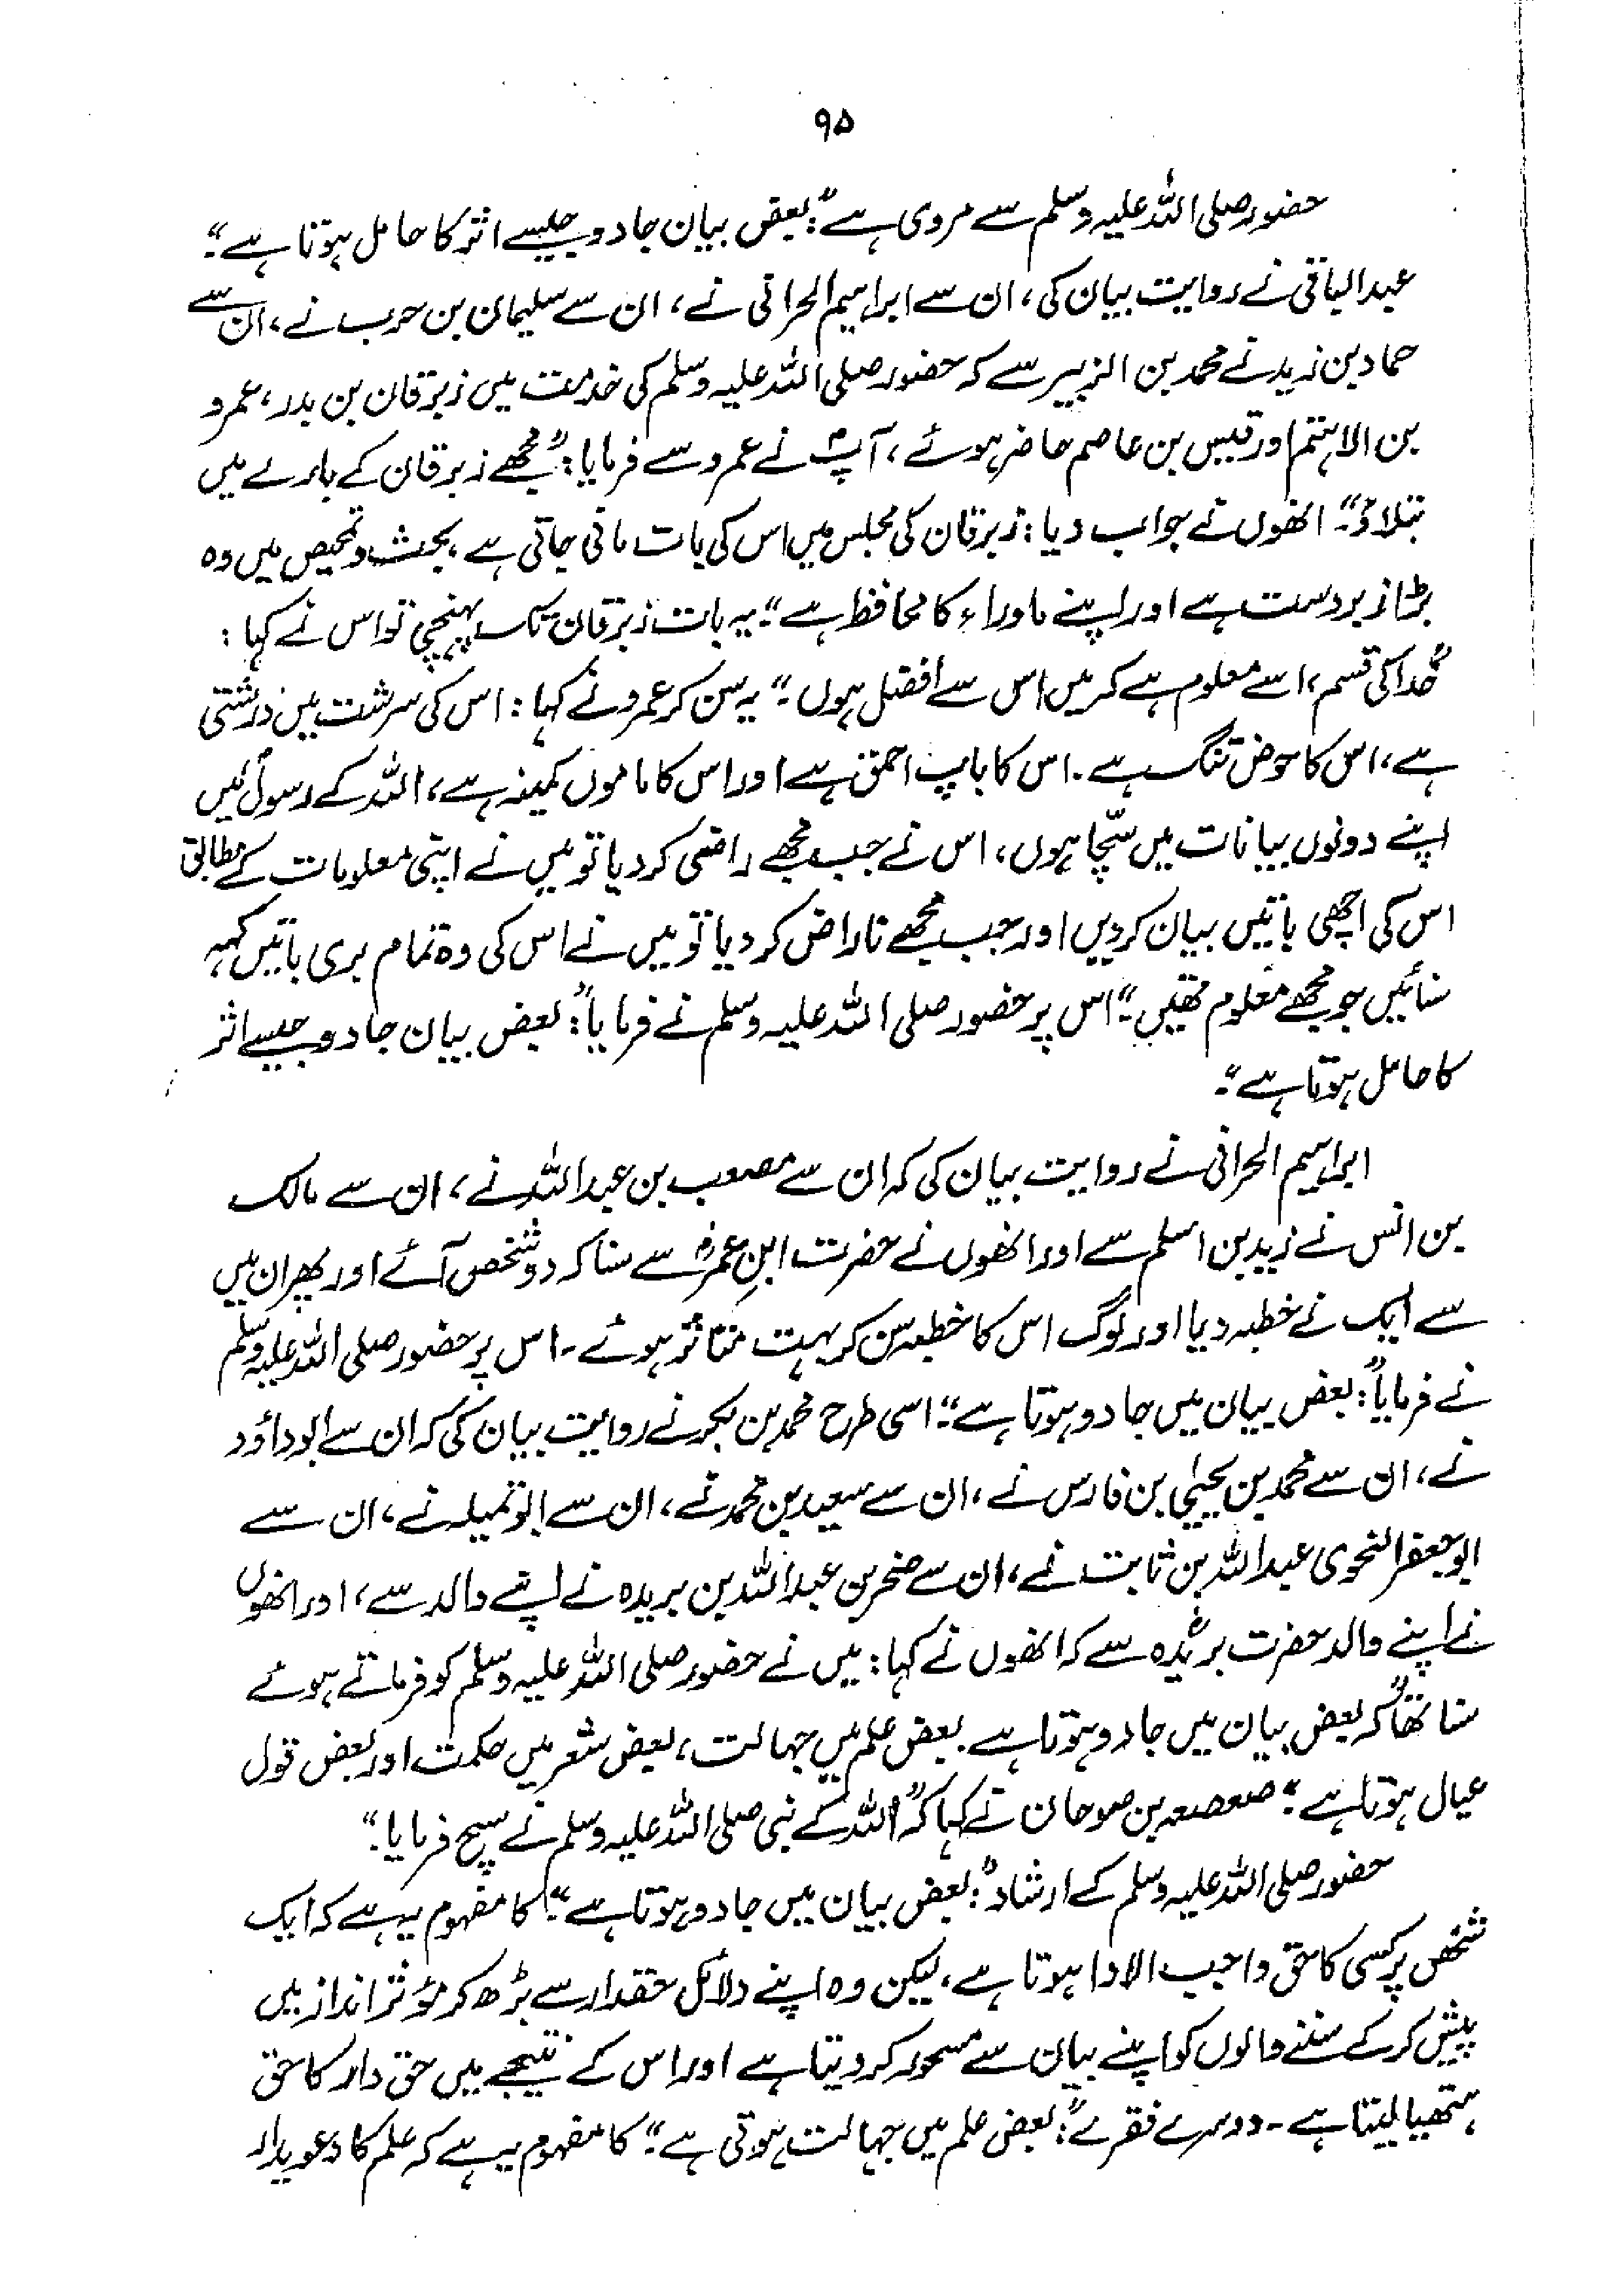 ۹۵
حضور صلی اللہ علیہ وسلم سے مروی ہے: "بعض بیان جادو جیسے اثر کا حامل ہوتا ہے"۔
عبدالباقی نے روایت بیان کی، ان سے ابراہیم الحرانی نے، ان سے سلیمان بن حرب نے، ان سے
حماد بن زید نے محمد بن الزبیر سے کہ حضور صلی اللہ علیہ وسلم کی خدمت میں زبرقان بن بدر، عمرو
بن الاہتم اور قیس بن عاصم حاضر ہوئے، آپؐ نے عمرو سے فرمایا: "مجھے زبرقان کے بارے میں
بتلاؤ"۔ انھوں نے جواب دیا: زبرقان کی مجلس میں اس کی بات مانی جاتی ہے، بحث و تمحیص میں وہ
بڑا زبردست ہے اور اپنے ماوراء کا محافظ ہے"۔ یہ بات زبرقان تک پہنچی تو اس نے کہا:
"خدا کی قسم، اسے معلوم ہے کہ میں اس سے افضل ہوں۔" یہ سن کر عمرو نے کہا: اس کی سرشت میں درشتی
ہے، اس کا حوض تنگ ہے۔ اس کا باپ احمق ہے اور اس کا ماموں کمینہ ہے، اللہ کے رسولؐ میں
اپنے دونوں بیانات میں سچّا ہوں، اس نے جب مجھے راضی کر دیا تو میں نے اپنی معلومات کے مطابق
اس کی اچھی باتیں بیان کر دیں اور جب مجھے ناراض کر دیا تو میں نے اس کی وہ تمام بری باتیں کہہ
سنائیں جو مجھے معلوم تھیں"۔ اس پر حضور صلی اللہ علیہ وسلم نے فرمایا: "بعض بیان جادو جیسے اثر
کا حامل ہوتا ہے"۔
ابراہیم الحرانی نے روایت بیان کی کہ ان سے مصعب بن عبداللہ نے، ان سے مالک
بن انس نے زید بن اسلم سے اور انھوں نے حضرت ابنِ عمرؓ سے سنا کہ دو شخص آئے اور پھر ان میں
سے ایک نے خطبہ دیا اور لوگ اس کا خطبہ سن کر بہت متاثر ہوئے۔ اس پر حضور صلی اللہ علیہ وسلم
نے فرمایا: "بعض بیان میں جادو ہوتا ہے"۔ اسی طرح محمد بن بکر نے روایت بیان کی کہ ان سے ابوداؤد
نے، ان سے محمد بن یحییٰ بن فارس نے، ان سے سعید بن محمد نے، ان سے ابو تمیلہ نے، ان سے
ابو جعفر النحوی عبداللہ بن ثابت نے، ان سے صخر بن عبداللہ بن بریدہ نے اپنے والد سے، اور انھوں
نے اپنے والد حضرت بریدہؓ سے کہ انھوں نے کہا: میں نے حضور صلی اللہ علیہ وسلم کو فرماتے ہوئے
سنا تھا کہ "بعض بیان میں جادو ہوتا ہے بعض علم میں جہالت، بعض شعر میں حکمت اور بعض قول
عیال ہوتا ہے"۔ صعصعہ بن صوحان نے کہا کہ "اللہ کے نبی صلی اللہ علیہ وسلم نے سچ فرمایا۔"
حضور صلی اللہ علیہ وسلم کے ارشاد: "بعض بیان میں جادو ہوتا ہے"۔ کا مفہوم یہ ہے کہ ایک
شخص پر کسی کا حق واجب الادا ہوتا ہے، لیکن وہ اپنے دلائل حقدار سے بڑھ کر مؤثر انداز میں
پیش کر کے سننے والوں کو اپنے بیان سے مسحور کر دیتا ہے اور اس کے نتیجے میں حق دار کا حق
ہتھیا لیتا ہے۔ دوسرے فقرے: "بعض علم میں جہالت ہوتی ہے"۔ کا مفہوم یہ ہے کہ علم کا دعویدار